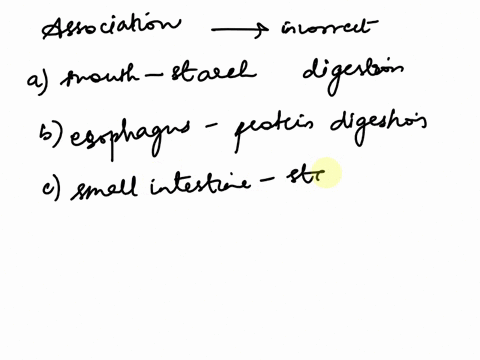 Association → incorrect
a) mouth - starch digestion
b) esophagus - protein digestion
c) small intestine - st